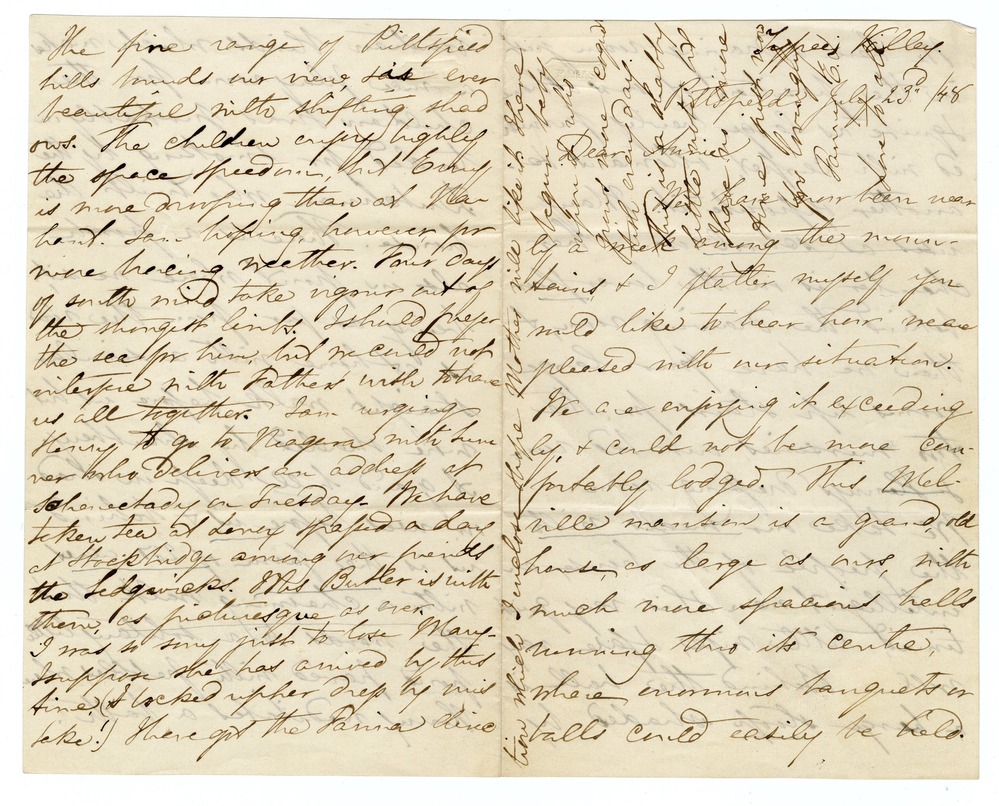 Pittsfield July 23d /48
Dear Annie
We have now been near
ly a week among the moun-
tains, & I flatter myself you
would like to hear how we are
pleased with our situation.
We are enjoying it exceeding
ly, & could not be more com-
fortably lodged. This Mel-
ville mansion is a grand, old
house, as large as ours, with
much more spacious halls
running thro its centre,
where enormous banquets or
balls could easily be held.
The fine range of Pittsfield
hills bounds our view, & is ever
beautiful with shifting shad
ows. The children enjoy highly
the space & freedom, but Erny
is more drooping than at Na
hant. I am hoping, however, for
more bracing weather. Four days
of south wind take vigour out of
the strongest limbs. I should prefer
the sea for him, but we could not
interfere with Father's wish to have
us all together. I am urging
Henry to go to Niagara with Sum
ner who delivers an address at
Schenectady on Tuesday. We have
taken tea at Lenox & passed a day
at Stockbridge among our friends
the Sedgwicks. Mrs Butler is with
them, as picturesque as ever.
I was so sorry just to lose Mary.
I suppose she has arrived by this
time. (I locked up her dress by mis
take!) I have got the Farina direc
tion which I enclose. I hope Mother will like it. I have
begun
who
grows more
ish every day.
This is a shabby
little note, but
have more
give
yrs
Fanny E.
Love to all